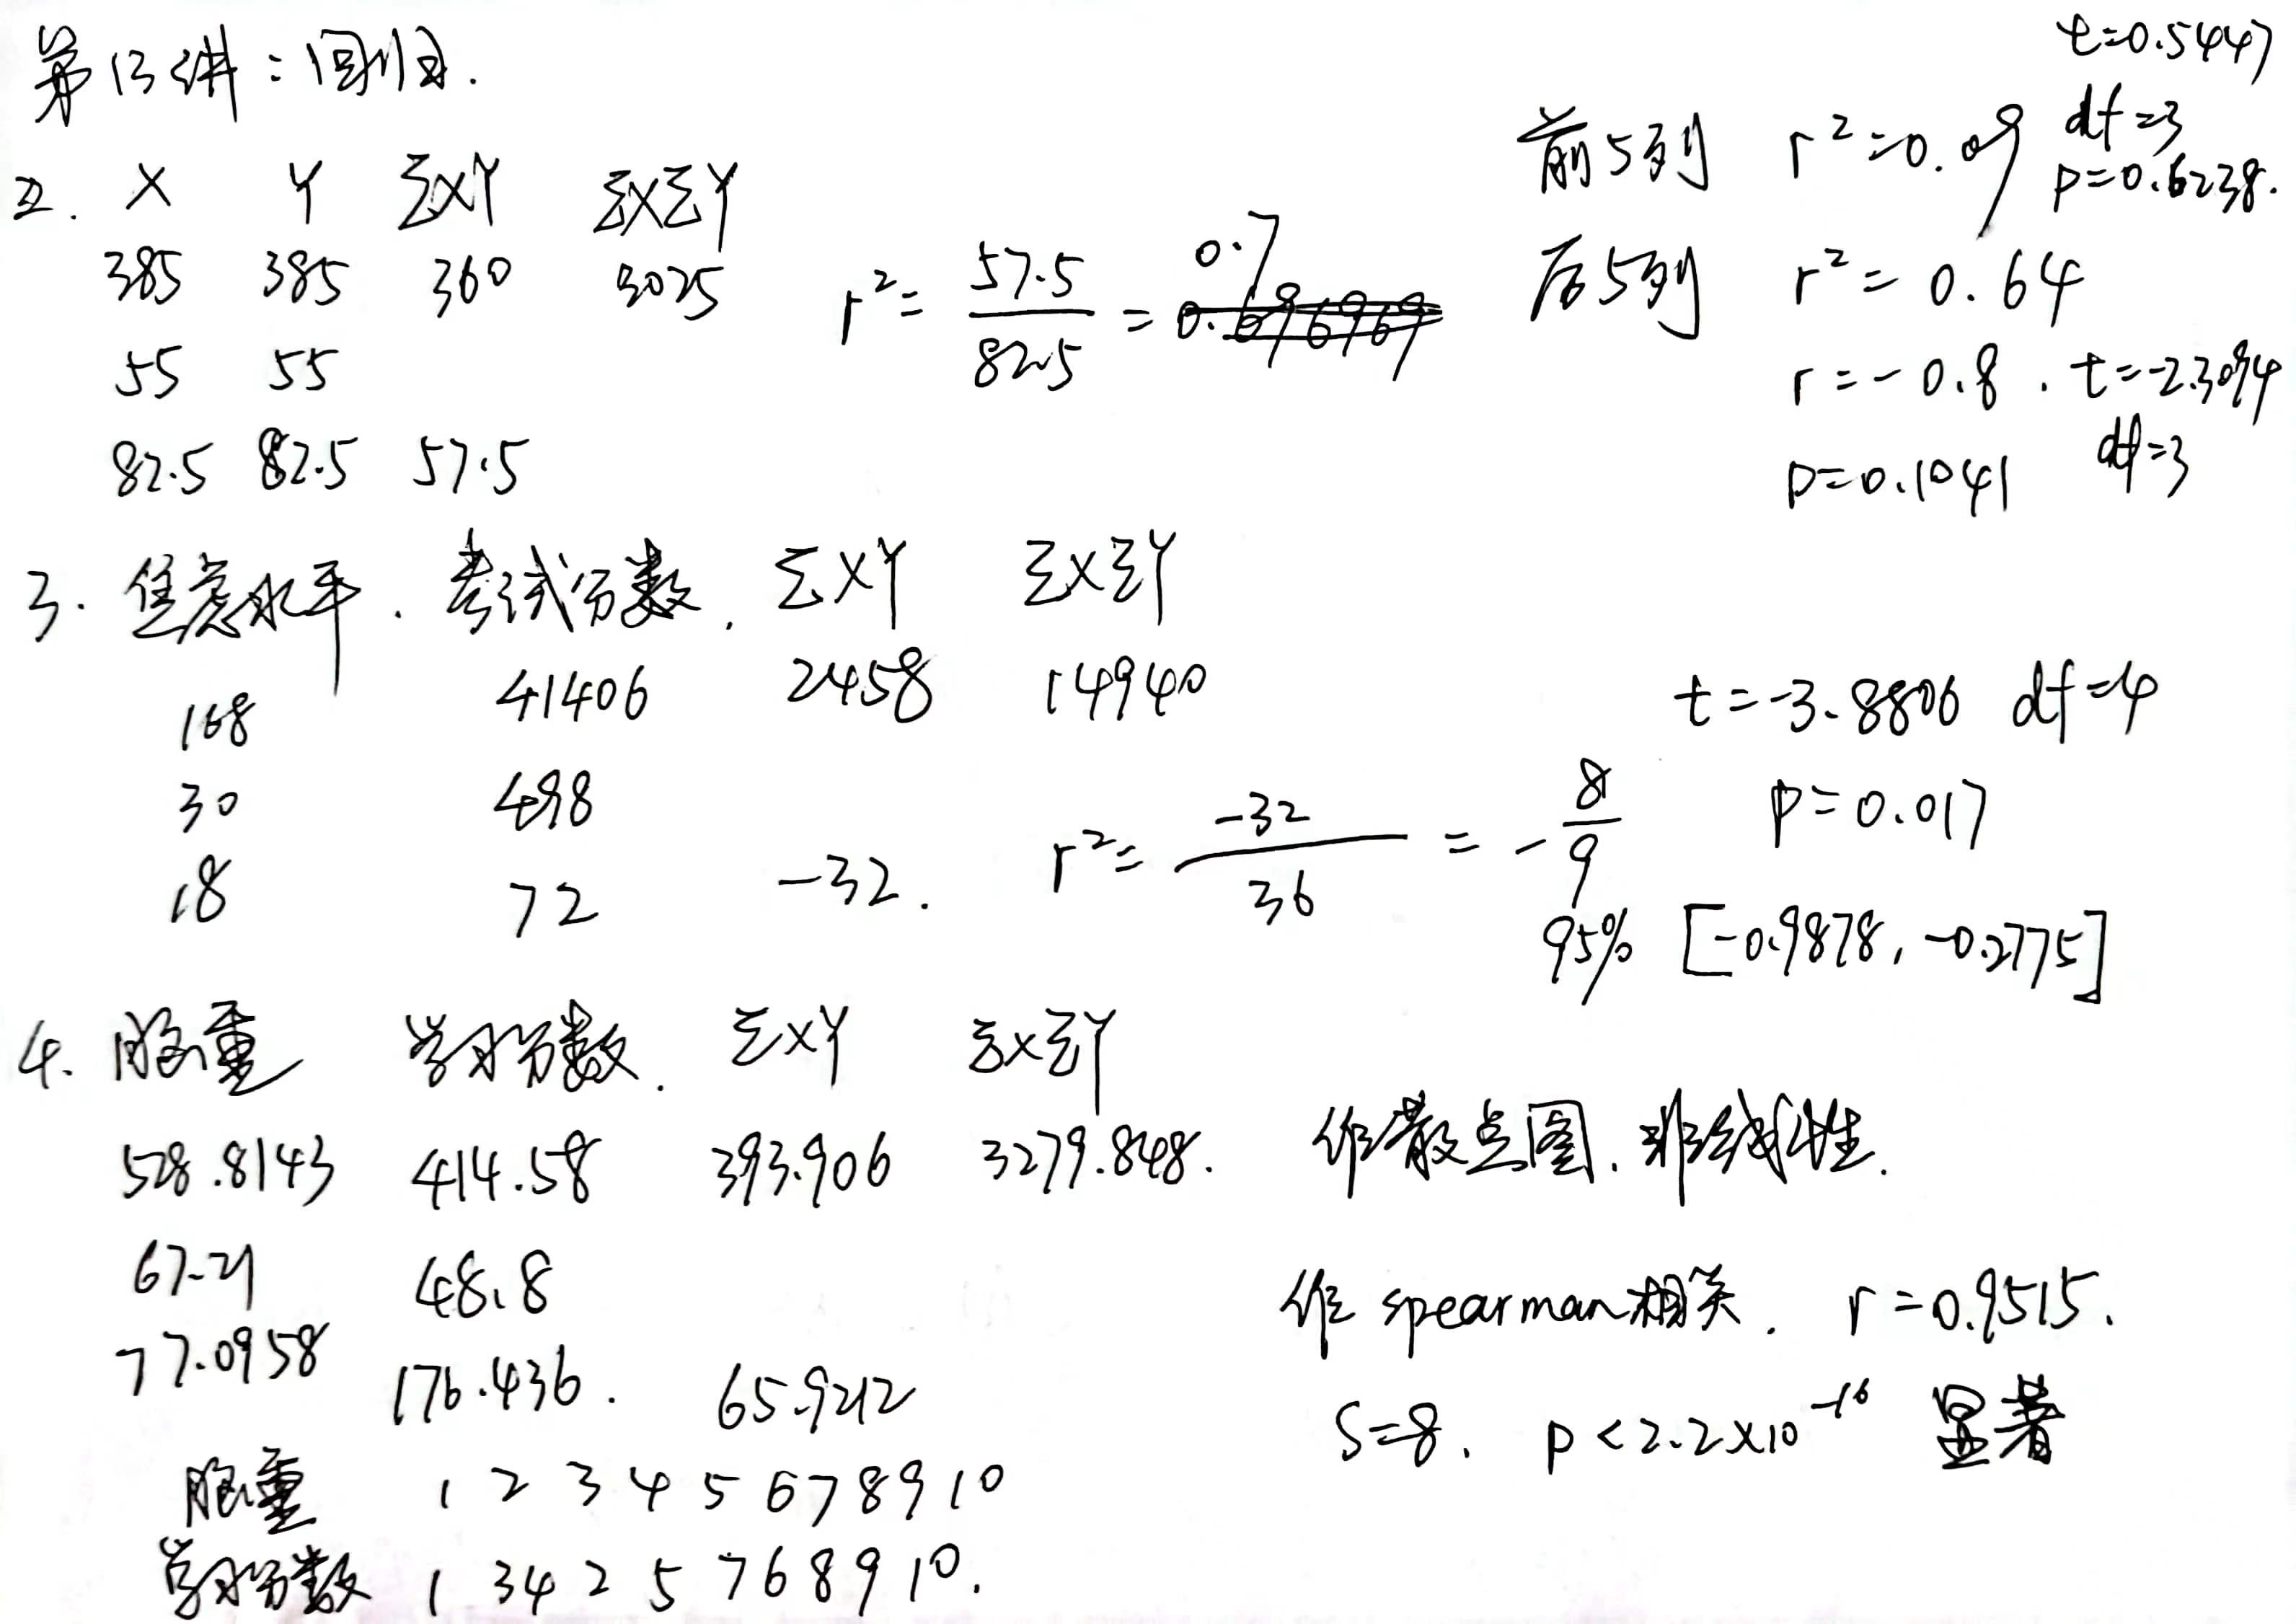 第13讲：回归.
2. X Y ΣXY ΣXΣY
385 385 360 3025
55 55
82.5 82.5 57.5
r² = 57.5/82.5 = 0.7
前5列 r²=0.09 t=0.5447 df=3 p=0.6238.
后5列 r²= 0.64
r=-0.8. t=-2.3094
p=0.1041 df=3
3. 焦虑水平. 考试分数. ΣXY ΣXΣY
168 41406 2458 14940
30 498
18 72 -32.
r²= -32/36 = -8/9
t=-3.8806 df=4
p=0.017
95% [-0.9878, -0.2775]
4. 脑重 学习分数. ΣXY ΣXΣY
528.8143 414.58 393.906 3279.848.
67.21 48.8
77.0958 176.436. 65.9212
作散点图. 非线性.
作 spearman相关. r=0.9515.
S=8. p<2.2×10⁻¹⁶ 显著
脑重 1 2 3 4 5 6 7 8 9 10
学习分数 1 3 4 2 5 7 6 8 9 10.